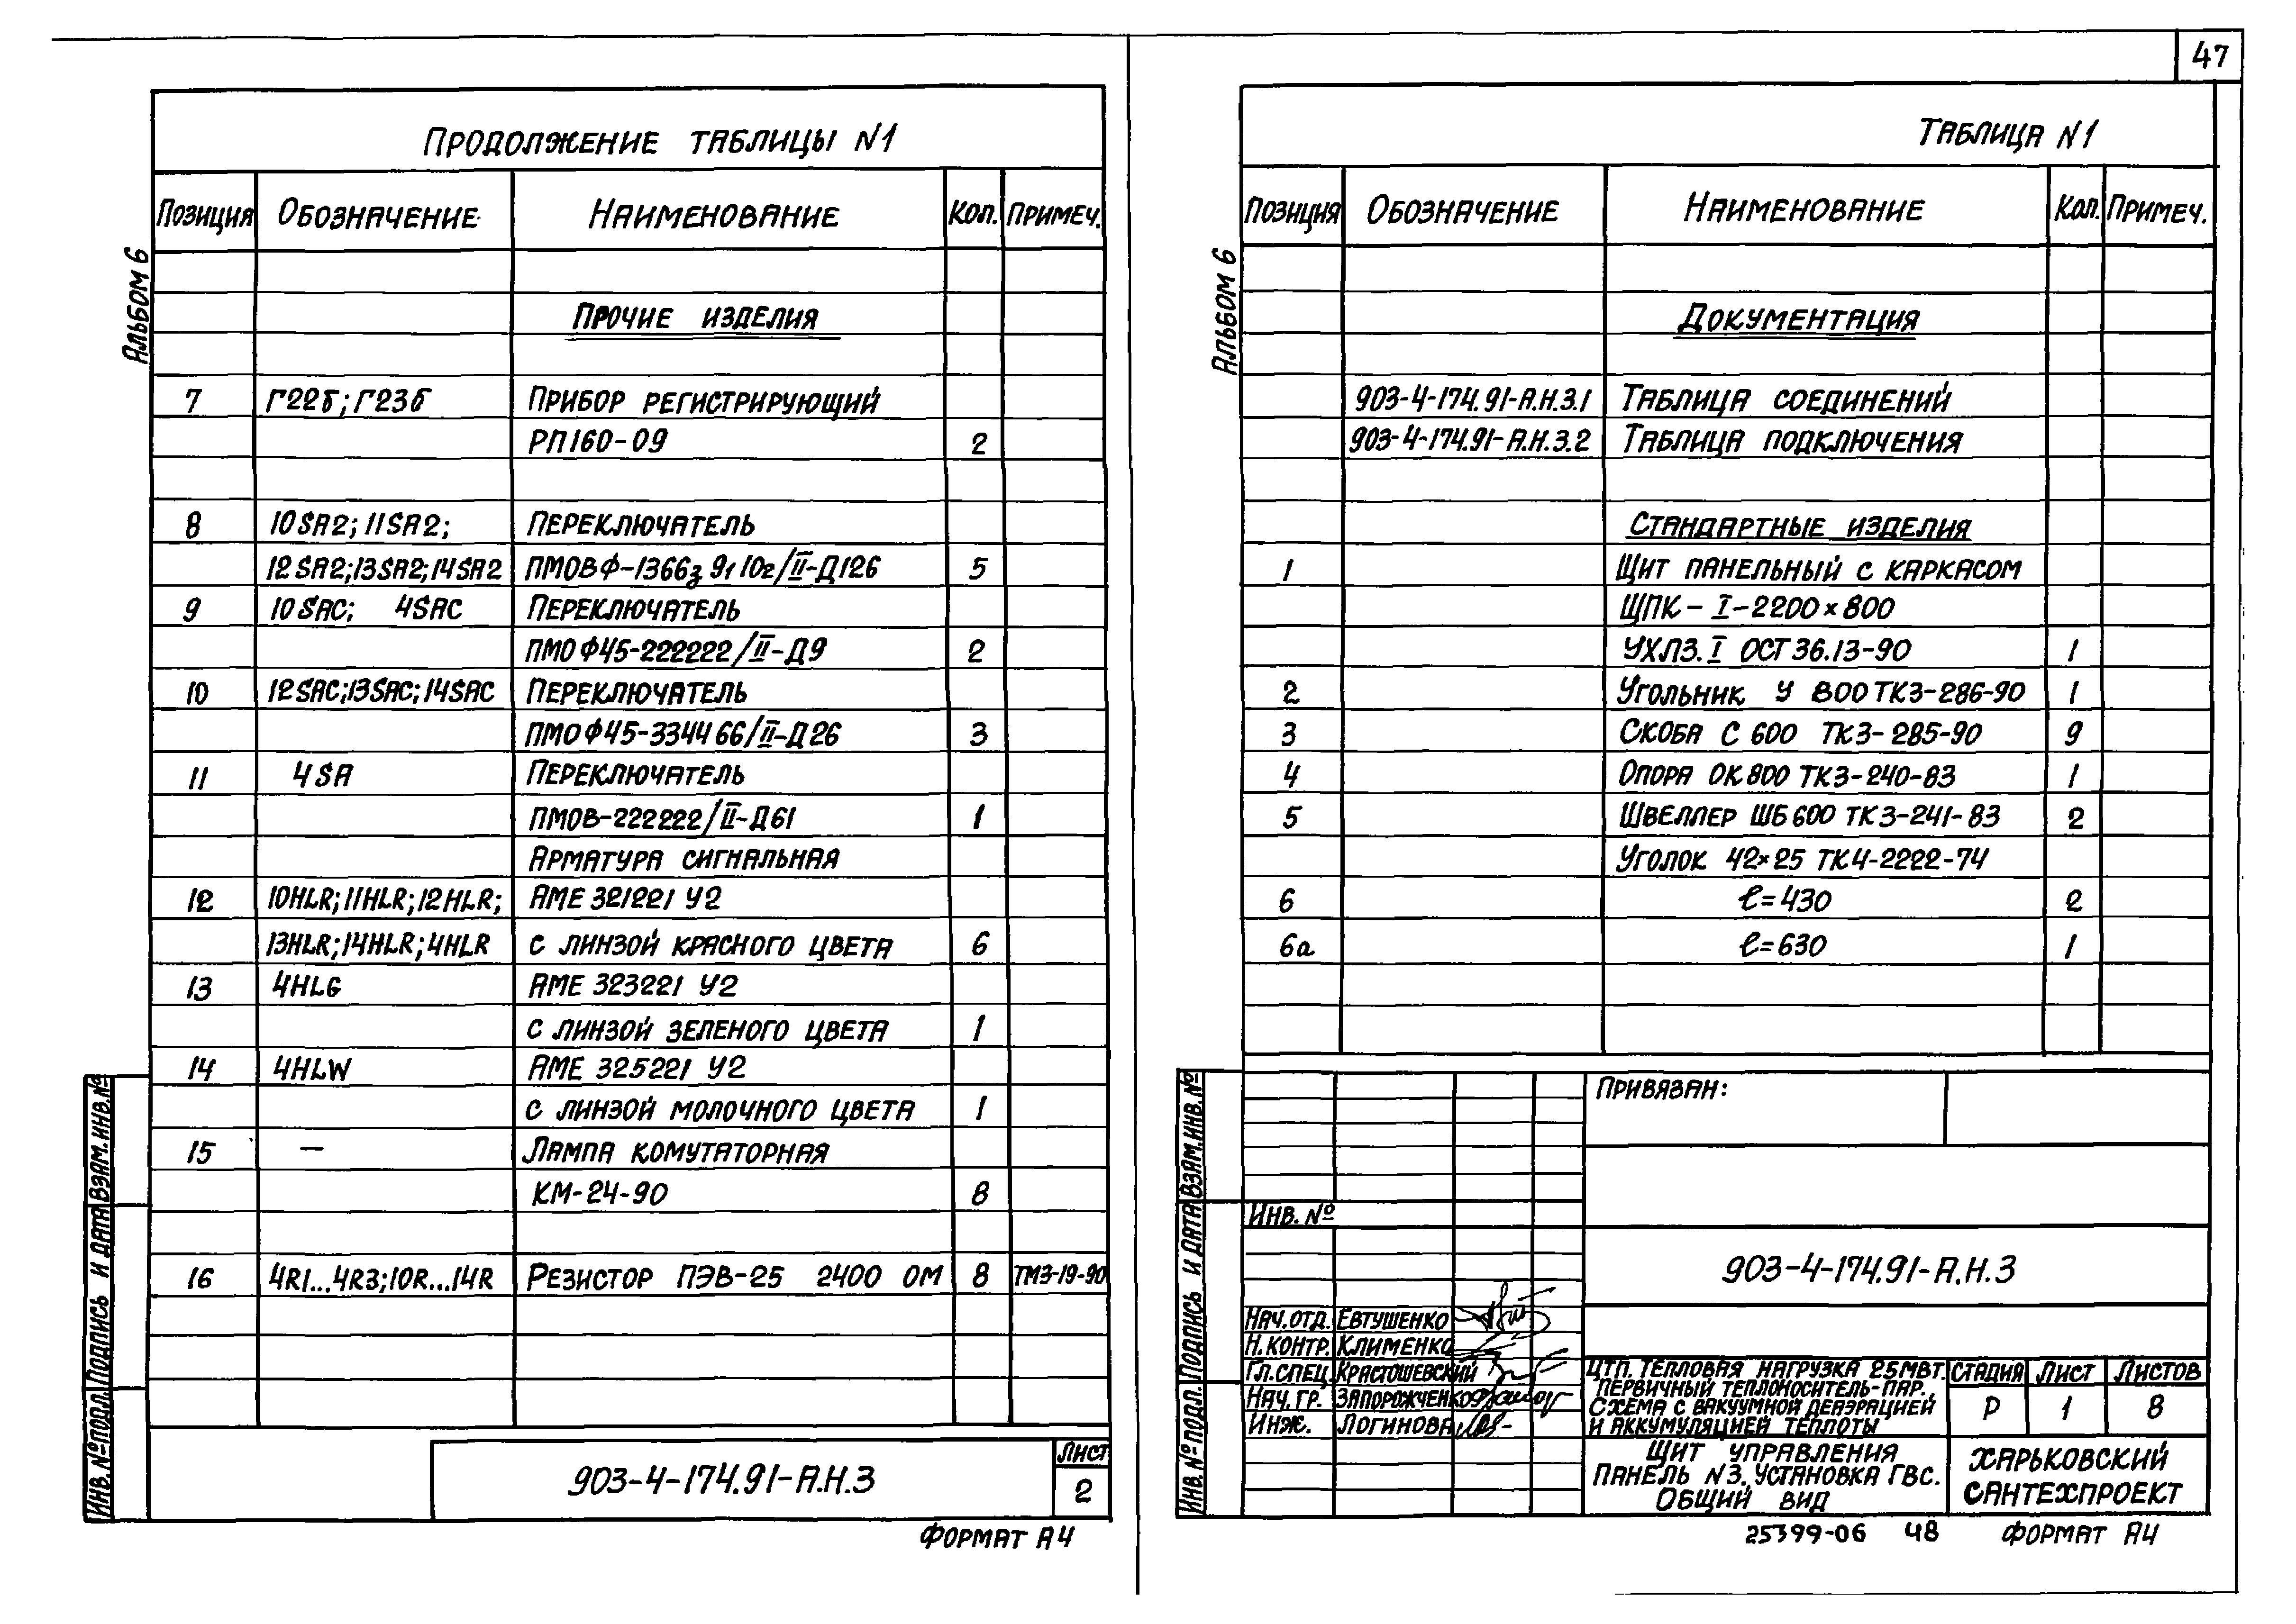 47
Продолжение таблицы N1
Позиция Обозначение Наименование Кол. Примеч.
Альбом 6
Прочие изделия
7 Г22б; Г23б Прибор регистрирующий
РП160-09 2
8 10SA2; 11SA2; Переключатель
12SA2; 13SA2; 14SA2 ПМОВФ-1366 /II-Д126 5
9 10SAC; 4SAC Переключатель
ПМОФ45-222222/II-Д9 2
10 12SAC; 13SAC; 14SAC Переключатель
ПМОФ45-334466/II-Д26 3
11 4SA Переключатель
ПМОВ-222222/II-Д61 1
Арматура сигнальная
12 10HLR; 11HLR; 12HLR; АМЕ 321221 У2
13HLR; 14HLR; 4HLR с линзой красного цвета 6
13 4HLG АМЕ 323221 У2
с линзой зеленого цвета 1
14 4HLW АМЕ 325221 У2
с линзой молочного цвета 1
15 — Лампа комутаторная
КМ-24-90 8
16 4R1...4R3; 10R...14R Резистор ПЭВ-25 2400 Ом 8 ТМ3-19-90
Инв. № подл. Подпись и дата Взам. инв. №
903-4-174.91-А.Н.3
Лист
2
Формат А4
Таблица N1
Позиция Обозначение Наименование Кол. Примеч.
Альбом 6
Документация
903-4-174.91-А.Н.3.1 Таблица соединений
903-4-174.91-А.Н.3.2 Таблица подключения
Стандартные изделия
1 Щит панельный с каркасом
ЩПК-I-2200×800
УХЛ3.I ОСТ 36.13-90 1
2 Угольник У 800 ТК3-286-90 1
3 Скоба С 600 ТК3-285-90 9
4 Опора ОК 800 ТК3-240-83 1
5 Швеллер ШБ 600 ТК3-241-83 2
Уголок 42×25 ТК4-2222-74
6 ℓ=430 2
6а ℓ=630 1
Инв. № подл. Подпись и дата Взам. инв. №
Привязан:
Инв. №
903-4-174.91-А.Н.3
Нач. отд. Евтушенко
Н. контр. Клименко
Гл. спец. Красташевский
Нач. гр. Запорожченко
Инж. Логинова
ЦТП. Тепловая нагрузка 25МВт.
Первичный теплоноситель-пар.
Схема с вакуумной деаэрацией
и аккумуляцией теплоты
Стадия Лист Листов
Р 1 8
Щит управления
Панель N3. Установка ГВС.
Общий вид
Харьковский
Сантехпроект
25399-06 48 Формат А4